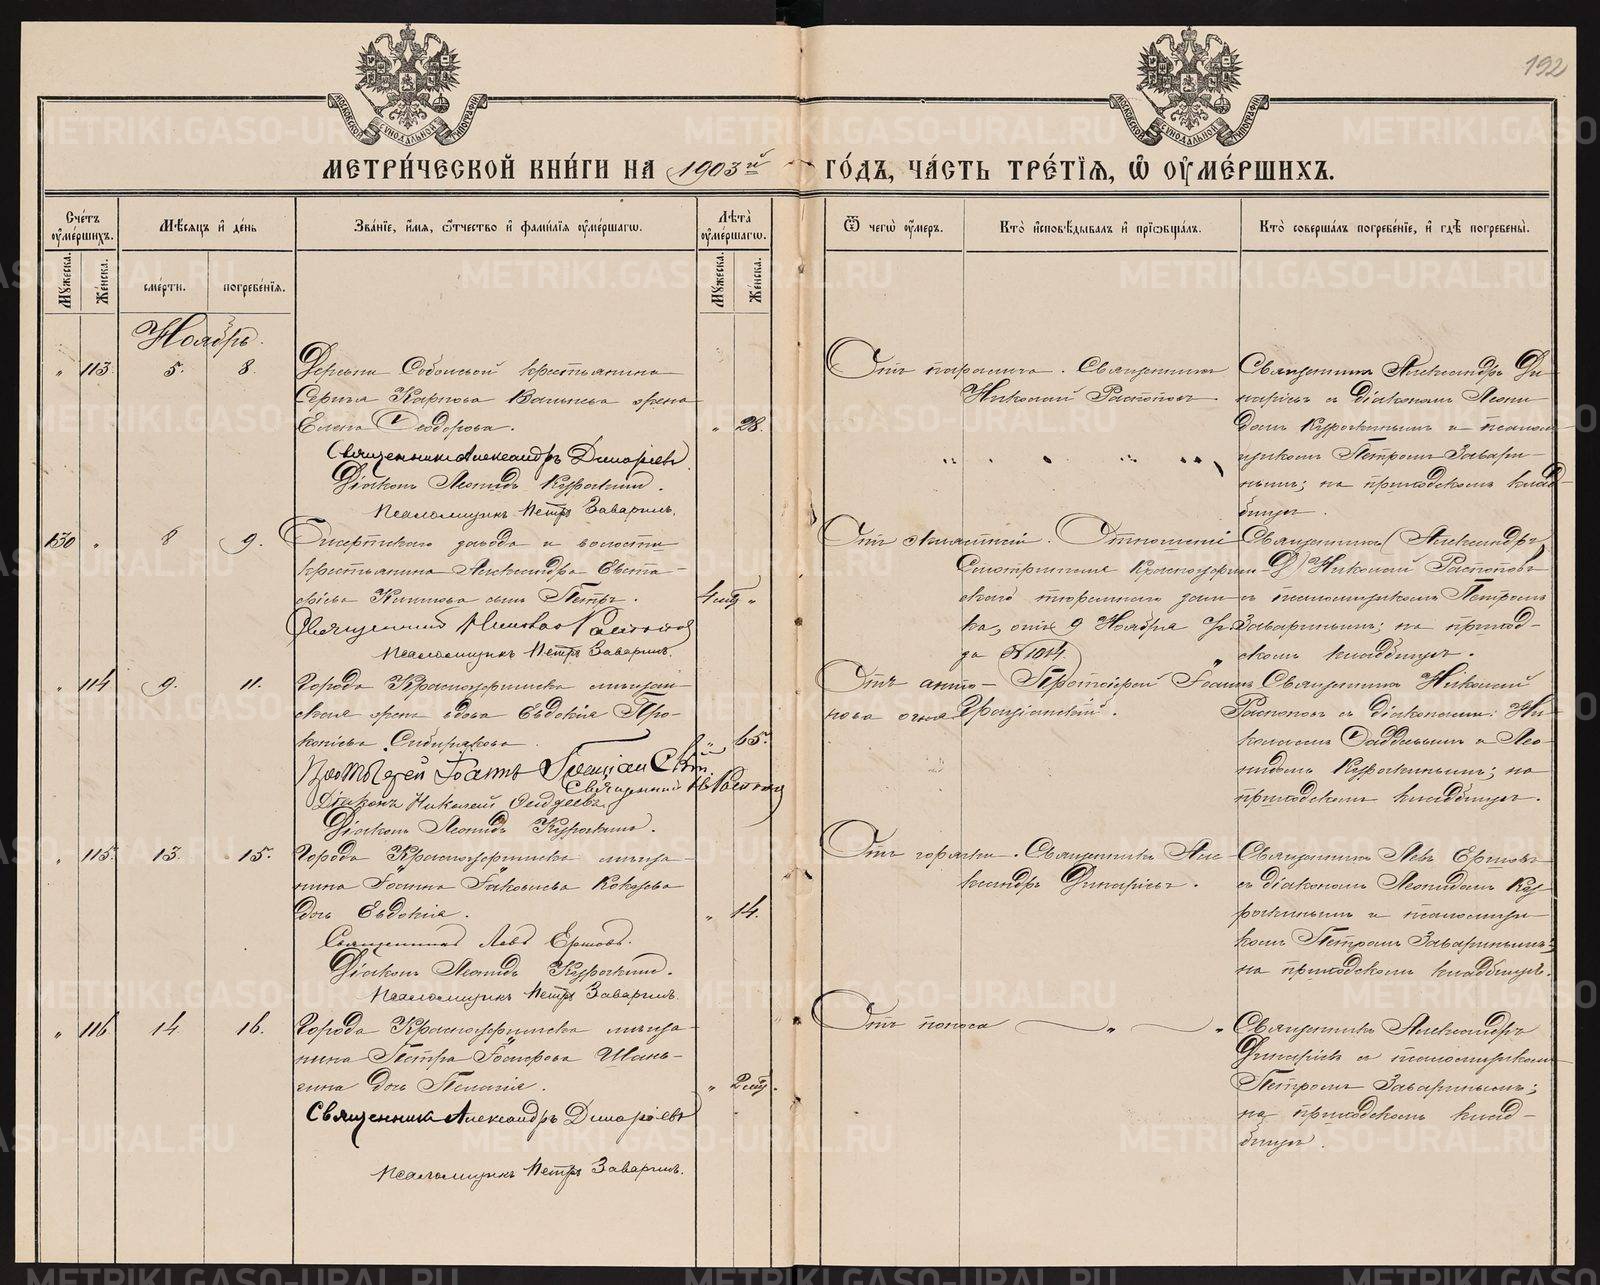 192
МОСКОВСКОЙ СѴНОДАЛЬНОЙ ТИПОГРАФІИ
МОСКОВСКОЙ СѴНОДАЛЬНОЙ ТИПОГРАФІИ
МЕТРИ́ЧЕСКОЙ КНИ́ГИ НА 1903й ГО́ДЪ, ЧА́СТЬ ТРЕ́ТІѦ, Ѡ҆ ОУ҆МЕ́РШИХЪ.
Сче́тъ оу҆ме́ршихъ.
Мѣ́сѧцъ и҆ де́нь
Зва́нїе, и҆́мѧ, ѻ҆́тчество и҆ фами́лїѧ оу҆ме́ршагѡ.
Лѣ́та оу҆ме́ршагѡ.
Ѿ чегѡ̀ оу҆́меръ.
Кто̀ и҆сповѣ́дывалъ и҆ прїѡбща́лъ.
Кто̀ соверша́лъ погребе́нїе, и҆ гдѣ̀ погребены̀.
Мꙋ́жеска.
Же́нска.
сме́рти.
погребе́нїѧ.
Мꙋ́жеска.
Же́нска.
Ноябрь.
" 113. 5. 8.
Деревни крестьянина
Сергія Карпова жена
Елена Ѳеодорова. " 28.
Священникъ Александръ Динаріевъ
Діаконъ Леонидъ Курочкинъ.
Псаломщикъ Петръ Заваринъ.
Отъ паралича. Священникъ
Николай Распоповъ
Священникъ Александръ Ди-
наріевъ съ діакономъ Леони-
домъ Курочкинымъ и псалом-
щикомъ Петромъ Завари-
нымъ; на приходскомъ клад-
бищѣ.
130 " 8 9.
завода и волости
крестьянина Александра Евста-
фіева сынъ Петръ. 4 мѣс "
Священникъ Николай Распоповъ
Псаломщикъ Петръ Заваринъ.
Отъ Отношеніе
Смотрителя Красноуфим-
скаго тюремнаго зам-
ка, отъ 9 Ноября с. го-
да № 1014.
Священникъ (Александръ
Д) Николай Распоповъ
съ псаломщикомъ Петромъ
Заваринымъ; на приход-
скомъ кладбищѣ.
" 114 9. 11.
Города Красноуфимска мѣщан-
ская жена вдова Евдокія Про-
копіева Сибирякова. " 65.
Протоіерей Іоаннъ Граціанскій
Священникъ Н. Распоповъ
Діаконъ Николай Ѳаддеевъ.
Діаконъ Леонидъ Курочкинъ.
Отъ анто-
нова огня
Протоіерей Іоаннъ
Граціанскій.
Священникъ Николай
Распоповъ съ діаконами: Ни-
колаемъ Ѳаддеевымъ и Лео-
нидомъ Курочкинымъ; на
приходскомъ кладбищѣ.
" 115. 13. 15.
Города Красноуфимска мѣща-
нина Іоанна Іаковлева
дочь Евдокія. " 14.
Священникъ Левъ Ершовъ.
Діаконъ Леонидъ Курочкинъ.
Псаломщикъ Петръ Заваринъ.
Отъ горячки. Священникъ Але-
ксандръ Динаріевъ.
Священникъ Левъ Ершовъ
съ діакономъ Леонидомъ Ку-
рочкинымъ и псаломщи-
комъ Петромъ Заваринымъ;
на приходскомъ кладбищѣ.
" 116 14. 16.
Города Красноуфимска мѣща-
нина Петра Шань-
гина дочь Пелагія. " 2 мѣс.
Священникъ Александръ Динаріевъ
Псаломщикъ Петръ Заваринъ.
Отъ поноса " "
Священникъ Александръ
Динаріевъ съ псаломщикомъ
Петромъ Заваринымъ;
на приходскомъ клад-
бищѣ.
METRIKI.GASO-URAL.RU